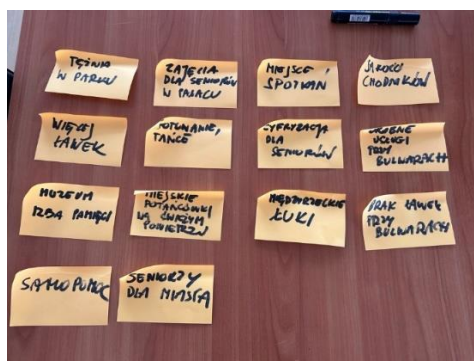 TĘŻNIA
W PARKU
ZAJĘCIA
DLA SENIORÓW
W PAŁACU
MIEJSCE
SPOTKAŃ
CHODNIKÓW
WIĘCEJ
ŁAWEK
TAŃCE
CYFRYZACJA
DLA
SENIORÓW
USŁUGI
PRZY
BULWARACH
MUZEUM
IZBA PAMIĘCI
MIEJSKIE
POTAŃCÓWKI
NA ŚWIEŻYM
POWIETRZU
MIĘDZYRZECKIE
ŁUKI
BRAK ŁAWEK
PRZY
BULWARACH
SAMOPOMOC
SENIORZY
DLA MIASTA